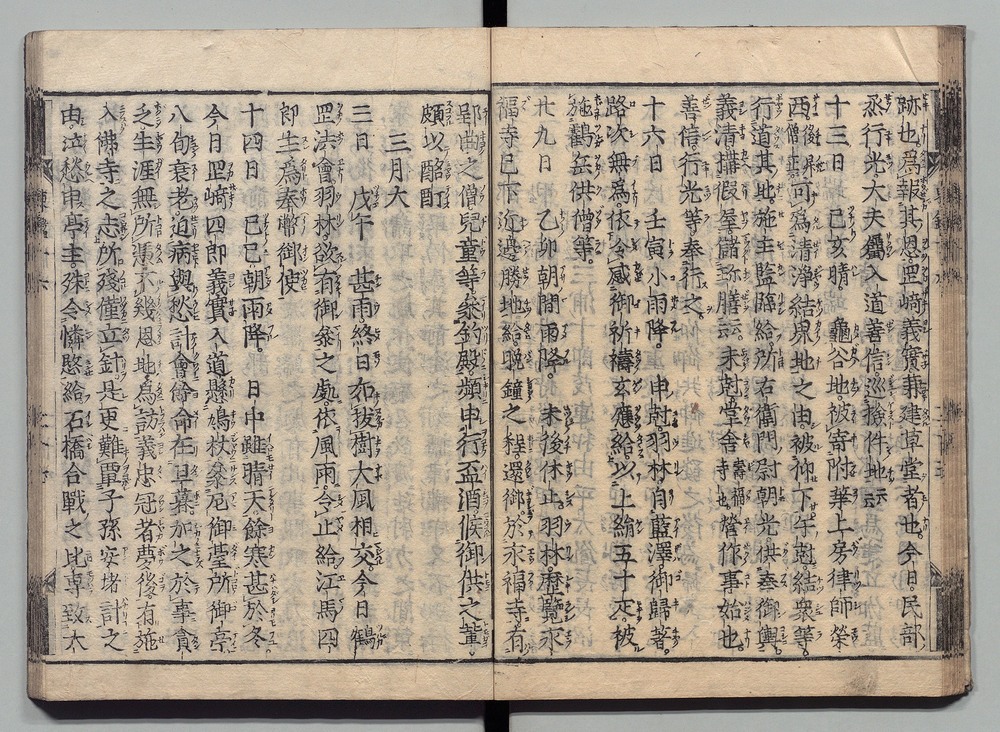 跡也。為報其恩。罡﨑義實兼建草堂者也。今日。民部
丞行光。大夫屬入道善信巡撿件地。云云
十三日　己亥晴　龜谷地。被寄附葉上房律師榮
西。後
僧正
畢。可為清淨結界地之由。被仰下。午尅結衆等。
行道其地。施主監臨給。所右衛門尉朝光供奉御輿。
義清搆假屋。儲珎膳云云。未尅堂舎
壽福
寺也
營作事始也。
善信。行光等奉行之。
十六日　壬寅小雨降。　申尅羽林。自藍澤御歸著。
路次無為。依令感御祈禱玄應給。以上絹五十疋。被
施鶴岳供僧等。
廿九日　乙卯朝間雨降。　未後休止。羽林。歴覽永
福寺已下近邊勝地給。晩鐘之程。還御於永福寺。有
郢曲之僧兒童等。参釣殿。頻申行盃酒。候御供之輩。
頗以酩酊
三月大
三日　戊午　甚雨終日。亦抜樹大風相交。今日鶴
罡法會。羽林欲有御参之處。依風雨。令止給。江馬四
郎主為奉幣御使
十四日　己巳朝雨降　日中雖晴天。餘寒甚於冬
今日罡﨑四郎義實入道懸鳩杖。参尼御臺所御亭
八旬衰老。迫病與愁計會。餘命在旦暮。加之於事貪
乏。生涯無所憑。不幾恩地。為訪義忠冠者夢後。有施
入佛寺之志。所殘僅立針。是更難覃子孫安堵計之
由。泣愁申。亭主殊令憐愍給。石橋合戰之比。専致大